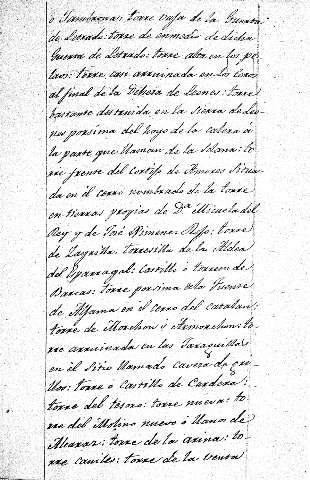 ó Tambrana: torre baja de la Guerra
de Letrado: torre de enmedio de dicha
Guerra de Letrado: torre alta en los pe
laos: torre casi arruinada en los Coros
al final de la Dehesa de Leones: torre
bastante destruida en la sierra de Leo
nes por sima del hoyo de la calera á
la parte que llaman de la Solana: to
rre frente del cortijo de Ameres situa
da en el cerro nombrado de la torre
en tierras propias de Dª Micaela del
Rey y de José Ximenez Rojo: torre
de Zagrilla: torresilla de la Aldea
del Esparragal: castillo ó torreon de
Barcas: torre por sima de la Fuente
de Alfama en el cerro del catalan:
torre de Morchon ó Armorchon: to
rre arruinada en las Taraquillas
en el sitio llamado
torre ó Castillo de Cardera:
torre del tesoro: torre nueva: to
rre del Molino nuevo ó llanos de
Alcaraz: torre de la arina: to
rre caniles: torre de la venta